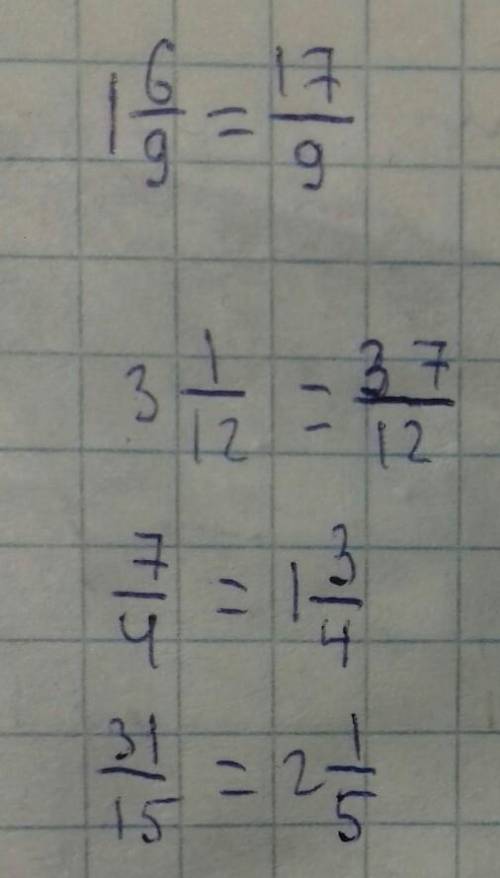 1 6/9 = 17/9
3 1/12 = 37/12
7/4 = 1 3/4
31/15 = 2 1/5